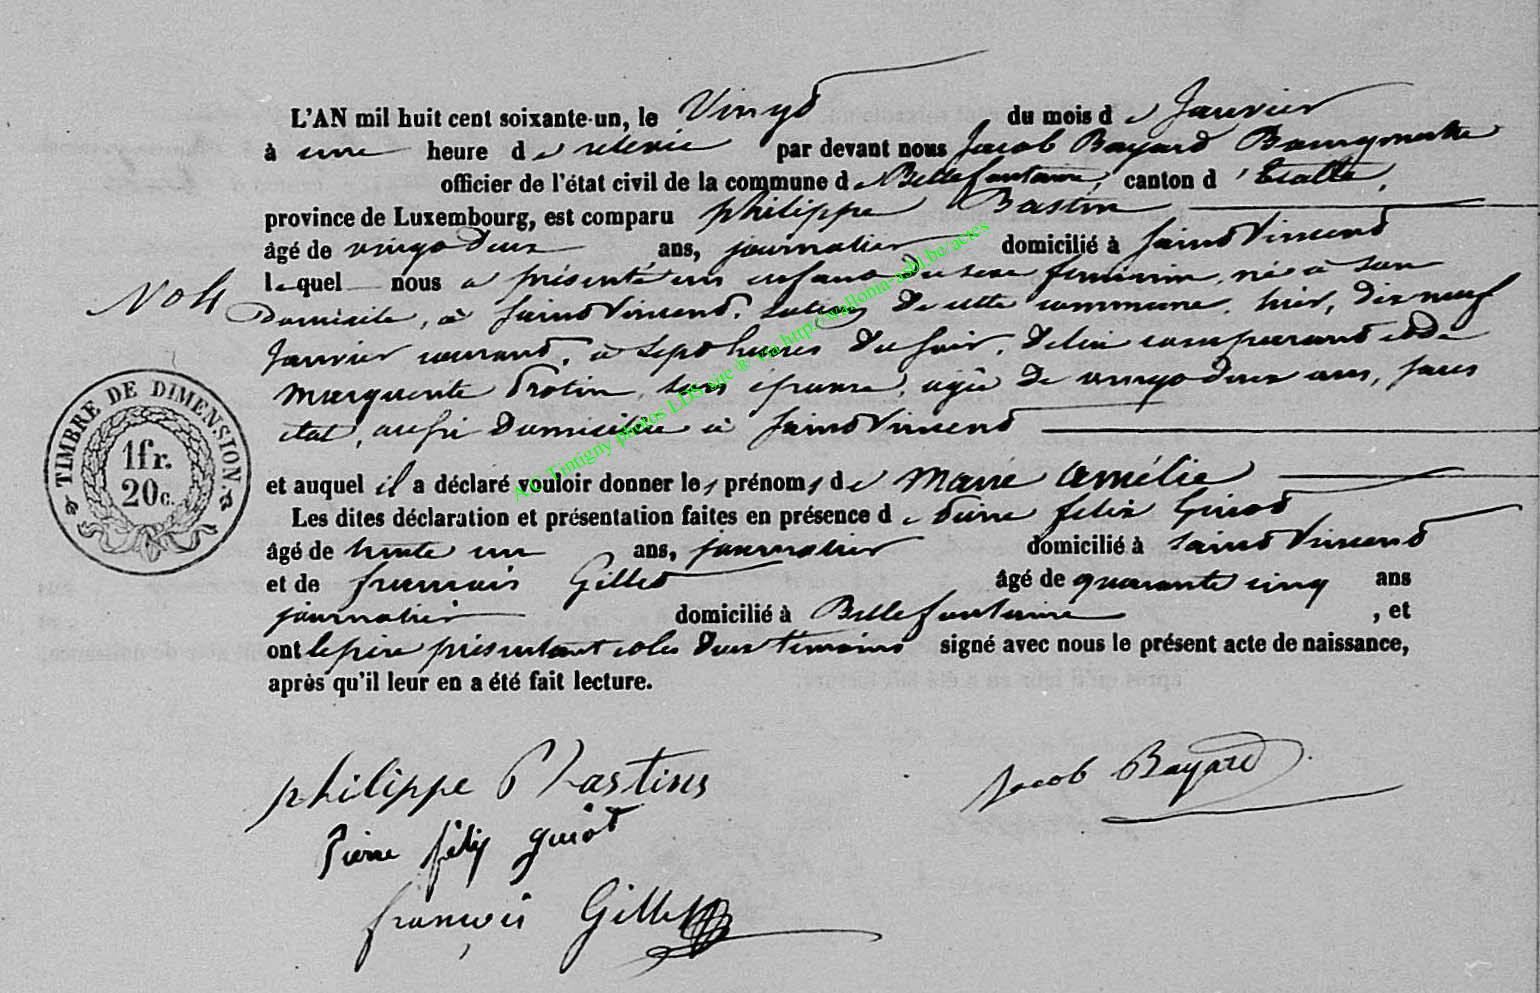 L'AN mil huit cent soixante-un, le Vingt du mois de Janvier
à une heure de relevée par devant nous Jacob Bayard Bourgmestre
officier de l'état civil de la commune de Bellefontaine, canton d'Etalle,
province de Luxembourg, est comparu philippe Bastin
âgé de vingt deux ans, journalier domicilié à Saint Vincent
lequel nous a présenté un enfant du sexe féminin, né à son
No 4
Domicile, à Saint Vincent, section de cette commune, hier, dix neuf
Janvier courant, à sept heures du soir, de lui comparant et de
Marguerite son épouse, agée de vingt deux ans, sans
état, aussi domiciliée à Saint Vincent
TIMBRE DE DIMENSION
1fr.
20c.
et auquel il a déclaré vouloir donner les prénoms de Marie Amélie
Les dites déclaration et présentation faites en présence de Pierre felix
âgé de trente un ans, journalier domicilié à Saint Vincent
et de francois Gillet âgé de quarante cinq ans
journalier domicilié à Bellefontaine, et
ont le père présentant et les deux témoins signé avec nous le présent acte de naissance,
après qu'il leur en a été fait lecture.
A.E. Tintigny photos LDS site ® via http://wallonia-asbl.be/actes
philippe Bastin
Jacob Bayard
Pierre félix
françois Gillet